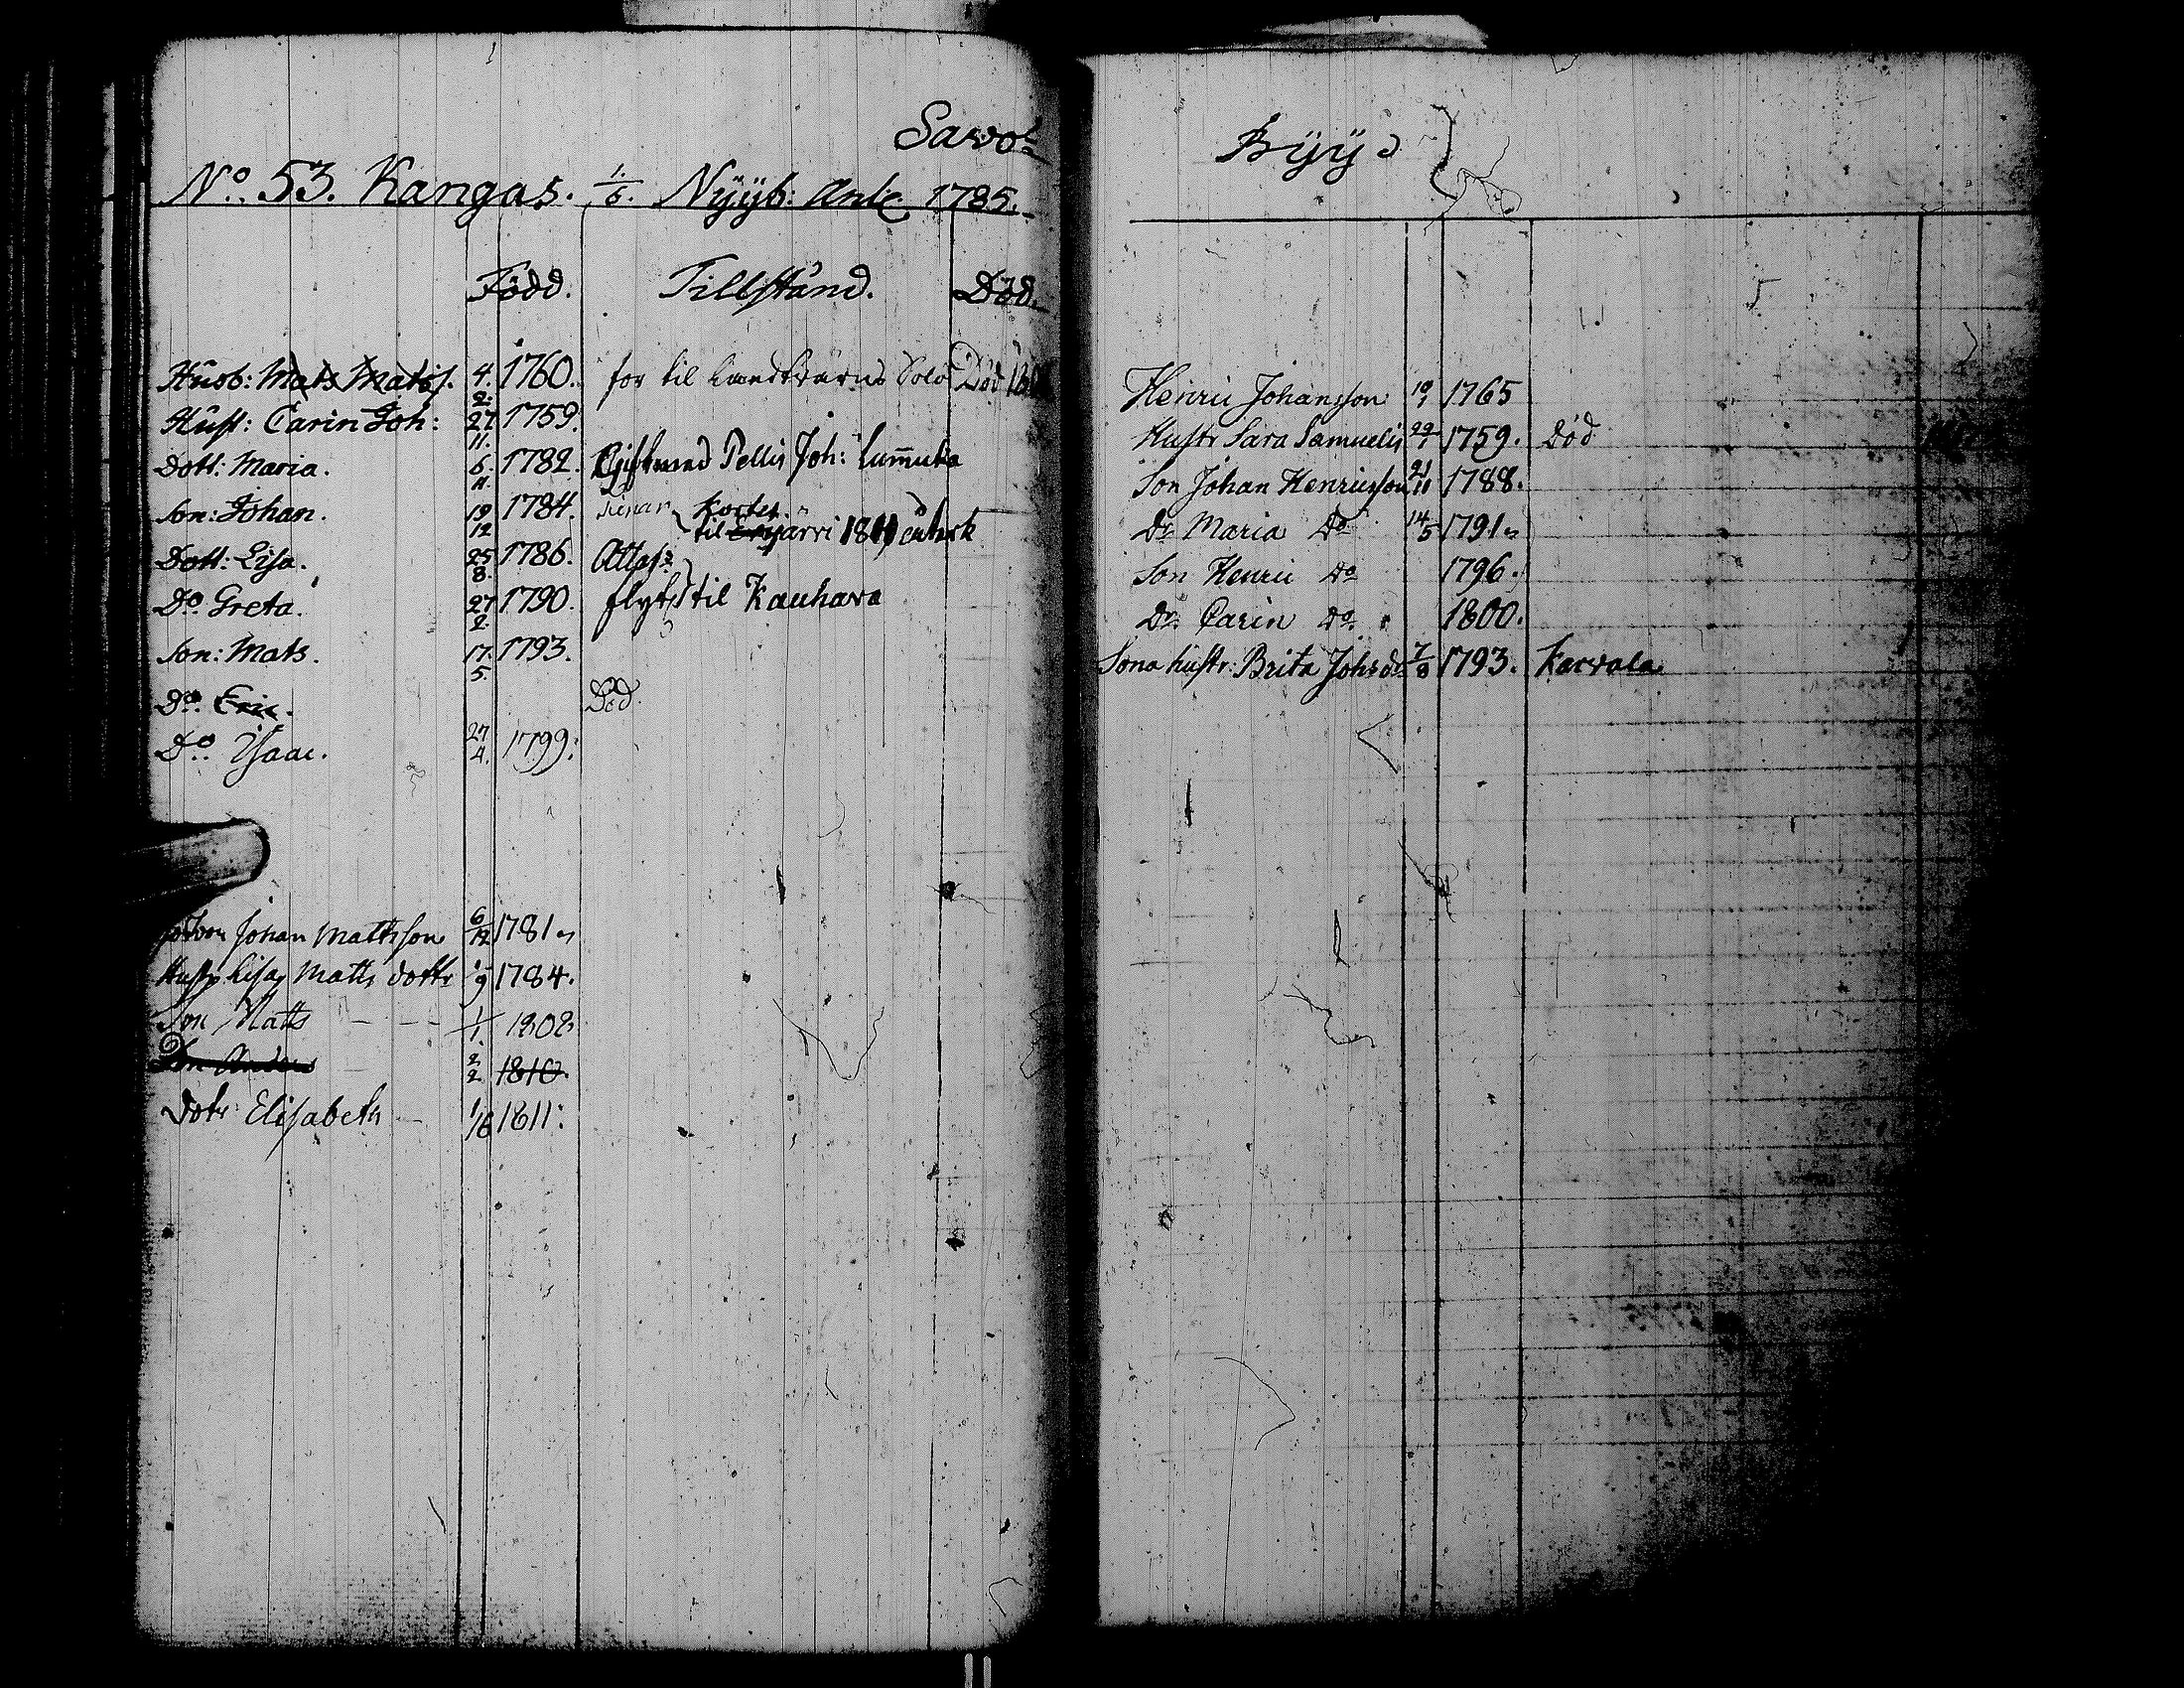 Savo
No. 53. Kangas. 1/6. Nÿÿb: Anl: 1785.
Född. Tillstånd. Död.
Husb: Mats Matss. 4. 2. 1760. for til Död
Hust: Carin Joh: 27 11. 1759.
Dott: Maria. 6. 11. 1782. Gift med Pellis Joh: Lummuka
Son: Johan. 19 12 1784. Kortes. til 1811
Dott: Lisa. 25 8. 1786.
Do. Greta. 27 2. 1790. flyt til Kauhava
Son: Mats. 17. 5. 1793.
Do. Eric. Död.
Do. Isaac. 27 4. 1799.
Johan Mattsson 6/12 1781
Hust Lisa Matts dottr 1/9 1784.
Son Matts 1/1. 1808
Son Anders 2/2 1810.
Dotr Elisabeth 1/16 1811:
Bÿÿ
Henric Johansson 10/1 1765
Hustr Sara Samuelis 22/1 1759. Död
Son Johan Henricsson 21/10 1788.
Dr Maria Do 14/5 1791
Son Henric Do 1796.
Dr. Carin Do 1800.
Sona hustr: Brita Johsdr 7/8 1793. Karvala